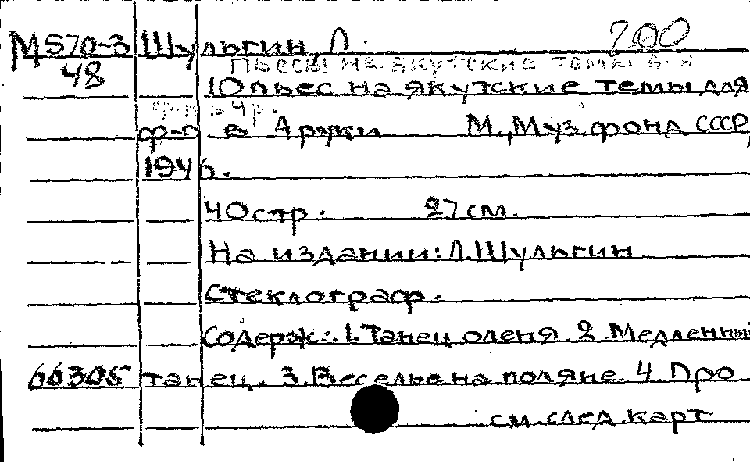 М570-3 Шульгин, Л. 200
48 Пьесы на якутские темы
10 пьес на якутские темы для
ф-п в 4 руки М., Муз.фонд СССР,
194
40стр. 27см.
На издании: Л.Шульгин
Стеклограф.
Содерж.: 1.Танец оленя 2. Медленный
66305 танец. 3.Веселье на поляне 4. Про
см.след.карт